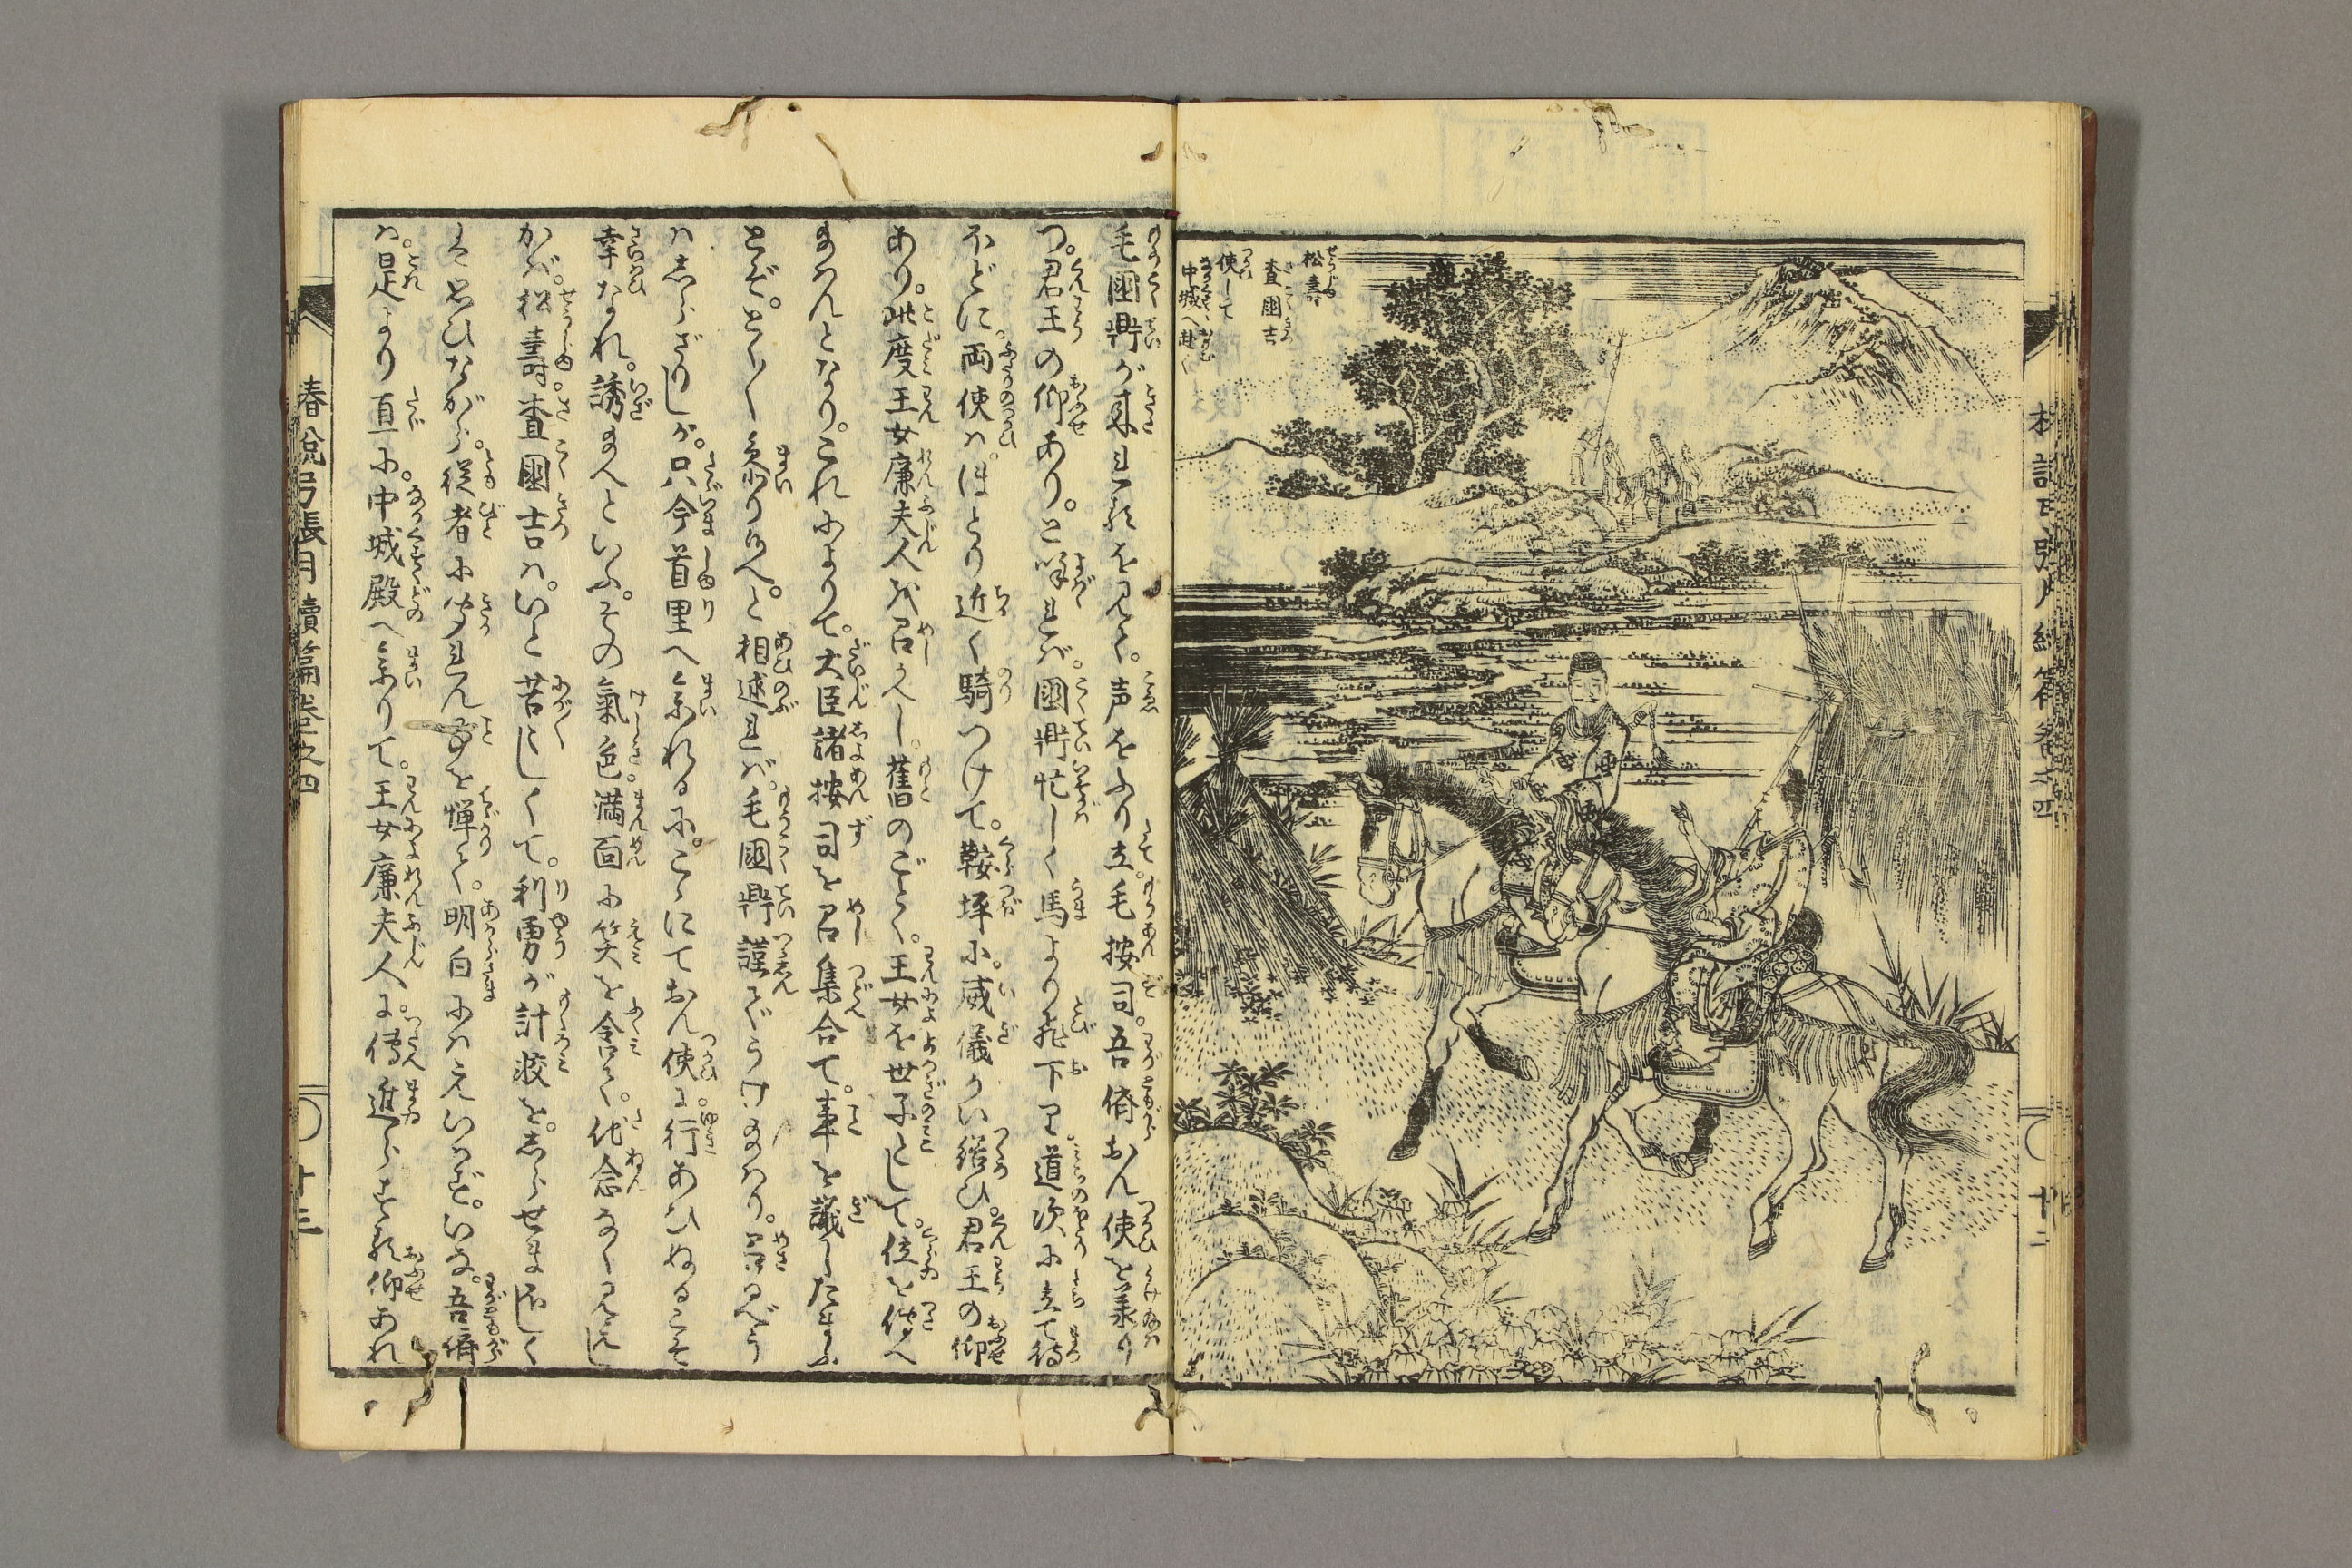 松壽
査國吉
使して
中城へ赴く
毛國鼎が来ませるを見て。声をふり立。毛按司。吾儕おん使を美り
つ。君王の仰あり。と呼れば。國鼎忙しく馬より飛下りて。道次に立て待
ほどに。両使はほとり近く騎つけて。鞍坪に威儀かい繕ひ。君王の仰
あり。此度王女廉夫人を召かへし。舊のごとく。王女を世子として。位を傳へ
給んとなり。これによりて。大臣諸按司を召集合て。事を議したまふ
とぞ。とく〳〵参り給へ。と相述れば。毛國鼎謹てうけ給はり。召るべう
はしらざりしが。只今首里へ参れるに。こゝにておん使に。行あひぬるこそ
幸なれ。誘給へといふ。その氣色。満面に笑を含て。他念なく見えし
かば。松壽。査國吉は。いと苦〳〵しくて。利勇が計較を。しらせまほしく
は思ひながら。従者に聞れん事を憚て。明白にはえいはず。いな。吾儕
は。是より直に。中城殿へ参りて。王女廉夫人に。傳進らする仰あれ
椿説弓張月續篇巻之四
十三